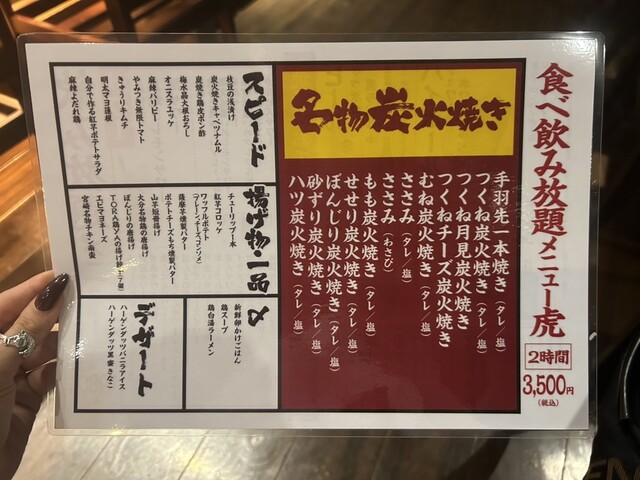 食べ飲み放題メニュー虎
2時間
3,500円
(税込)
名物炭火焼き
手羽先一本焼き(タレ/塩)
つくね炭火焼き(タレ/塩)
つくね月見炭火焼き
つくねチーズ炭火焼き
むね炭火焼き(タレ/塩)
ささみ(タレ/塩)
ささみ(わさび)
もも炭火焼き(タレ/塩)
せせり炭火焼き(タレ/塩)
ぼんじり炭火焼き(タレ/塩)
砂ずり炭火焼き(タレ/塩)
ハツ炭火焼き(タレ/塩)
スピード
枝豆の浅漬け
炭火焼きキャベツナムル
炭焼き鶏皮ポン酢
梅水晶大根おろし
オニスラユッケ
麻辣バリピー
やみつき無限トマト
きゅうりキムチ
明太マヨ蓮根
自分で作る紅芋ポテトサラダ
麻辣よだれ鶏
揚げ物・一品
チューリップ一本
紅芋コロッケ
ワッフルポテト
(プレーン/チーズ/コンソメ)
薩摩芋燻製バター
ポテトチーズもち燻製バター
山芋短冊揚げ
大分名物鶏の唐揚げ
ぼんじりの唐揚げ
エビマヨネーズ
宮崎名物チキン南蛮
〆
新鮮卵かけごはん
鶏スープ
鶏白湯ラーメン
デザート
ハーゲンダッツバニラアイス
ハーゲンダッツ黒蜜きなこ